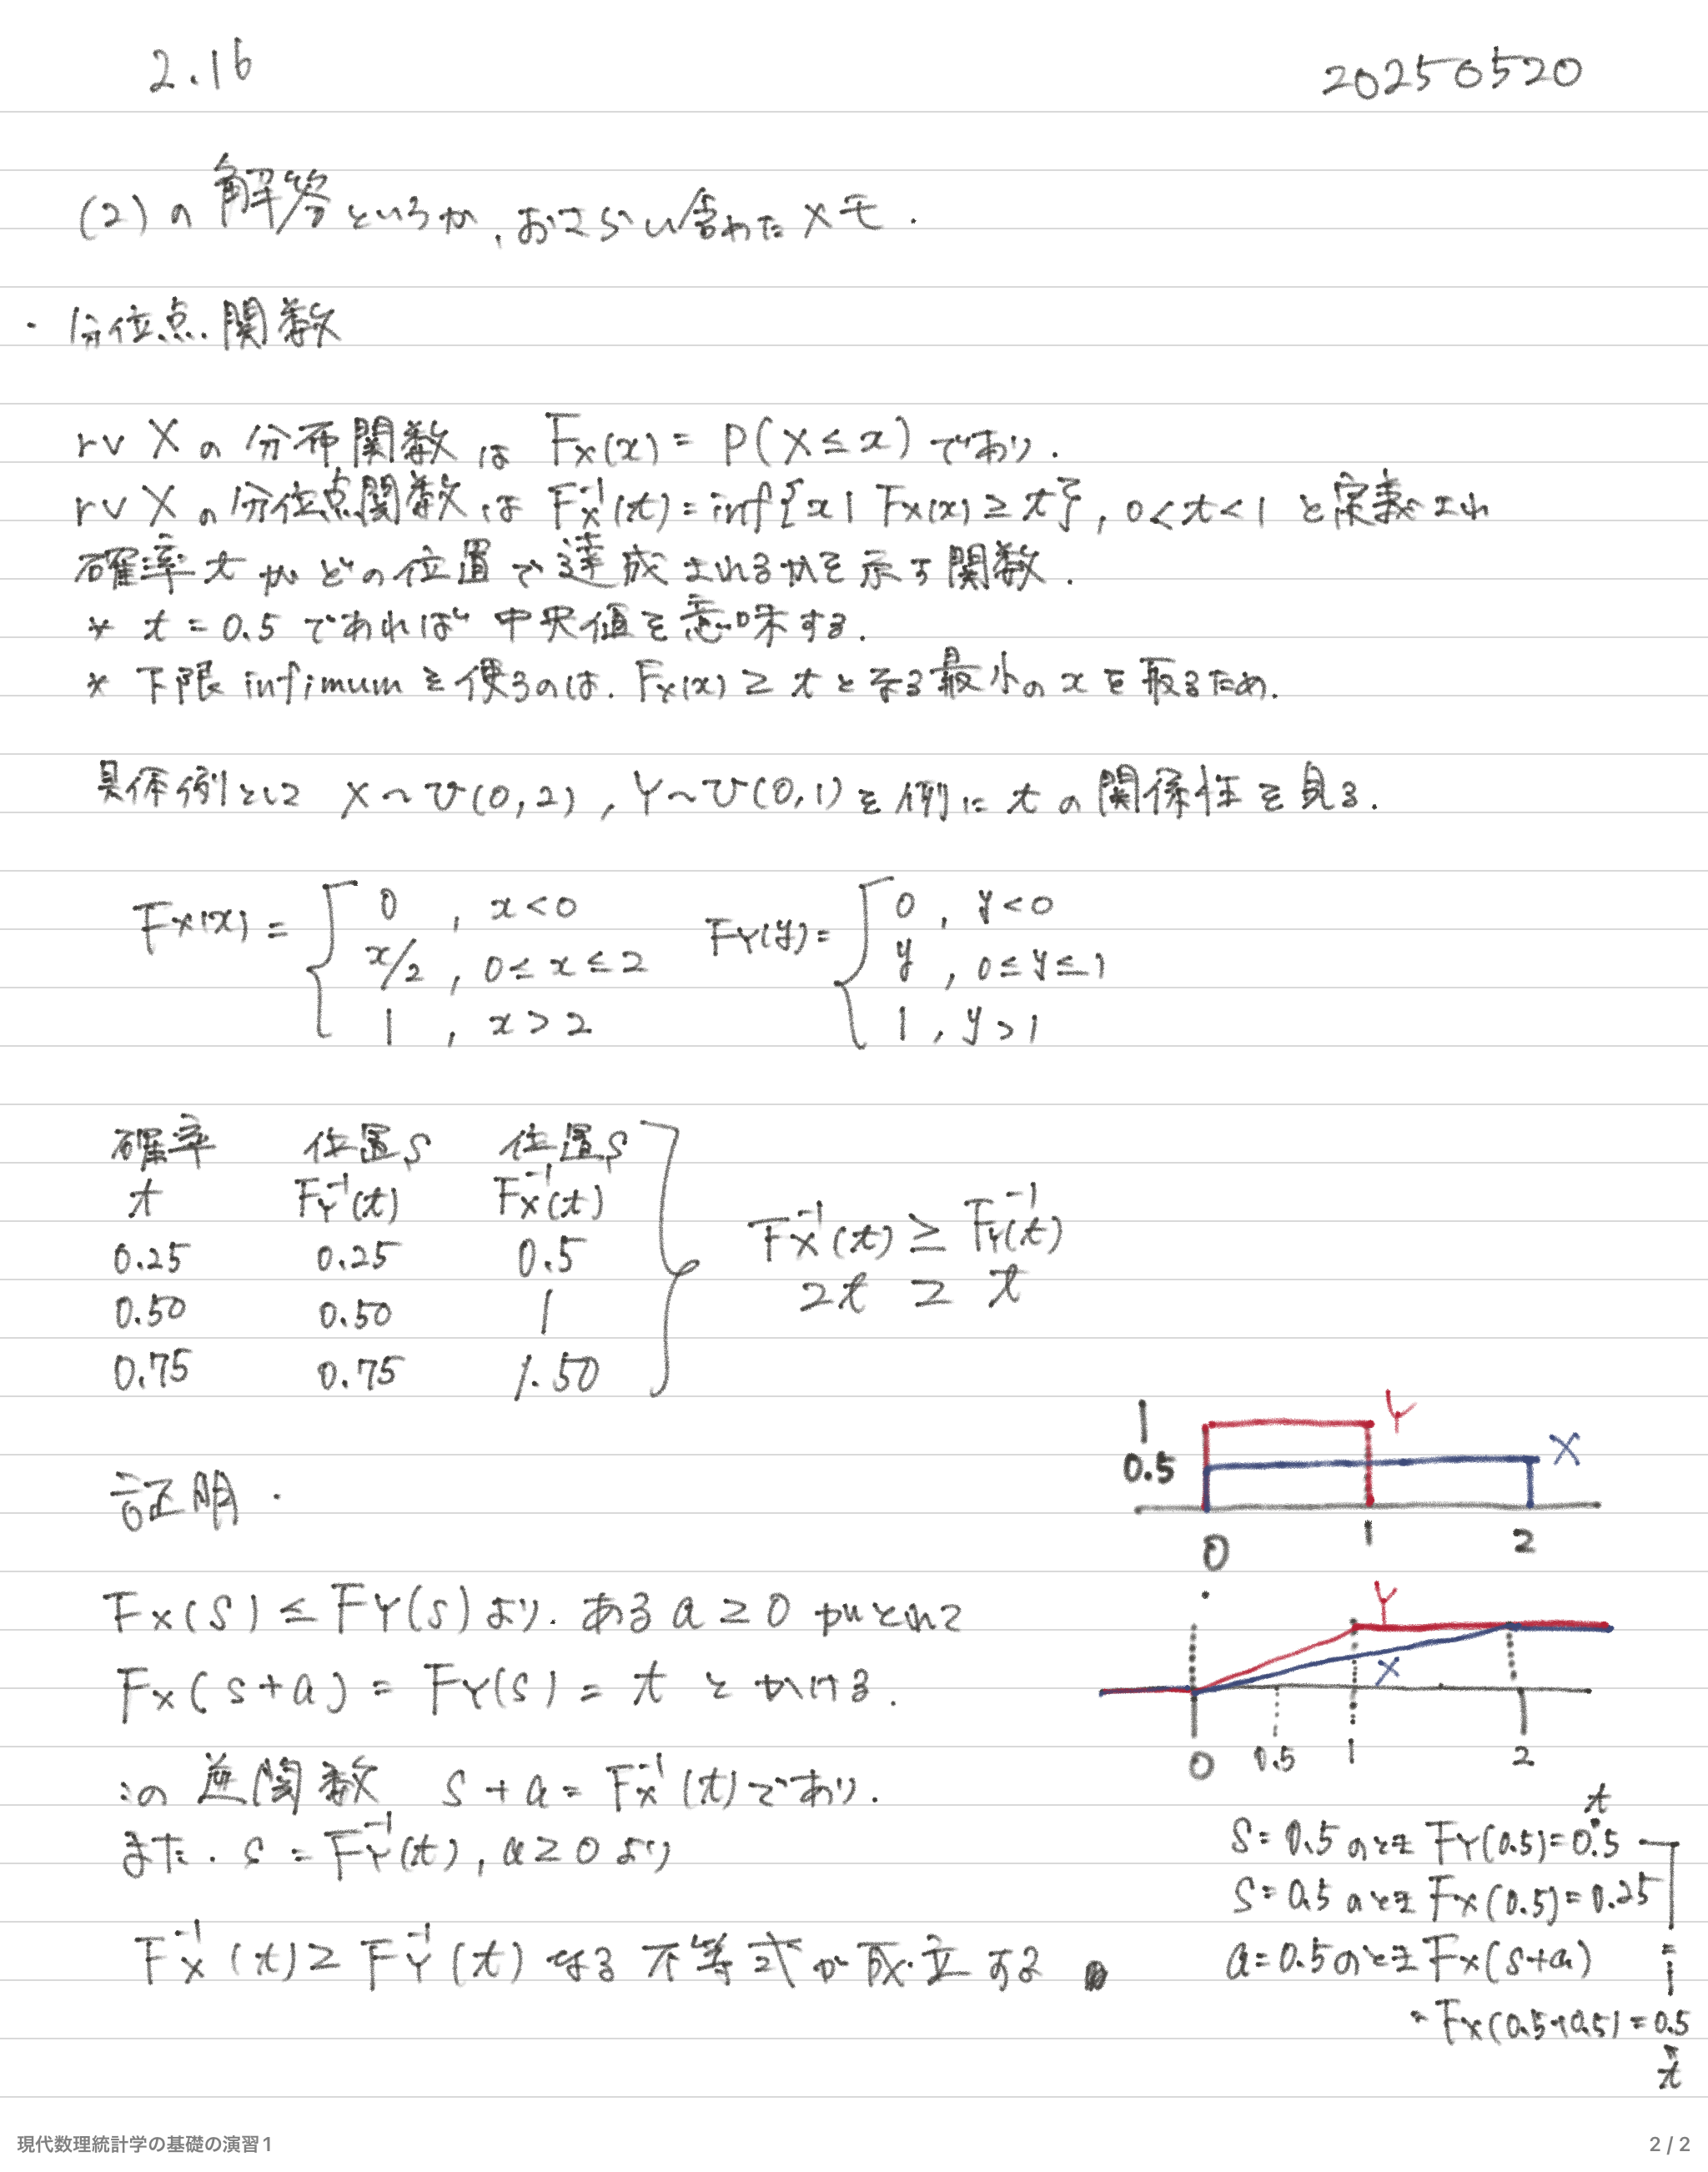 2.16
20250520
(2) の 解答というか、おさらい含めたメモ.
・ 分位点関数
rv X の 分布関数は F_X(x) = P(X ≤ x) であり.
rv X の 分位点関数は F_X^{-1}(t) = inf{x | F_X(x) ≥ t}, 0 < t < 1 と定義され
確率 t がどの位置で達成されるかを示す関数.
* t = 0.5 であれば 中央値を意味する.
* 下限 infimum を使うのは. F_X(x) ≥ t となる最小の x を取るため.
具体例として X ~ U(0, 2), Y ~ U(0, 1) を例に t の関係性を見る.
F_X(x) = { 0 , x < 0 F_Y(y) = { 0 , y < 0
x/2 , 0 ≤ x ≤ 2 y , 0 ≤ y ≤ 1
1 , x > 2 1 , y > 1
確率 位置s 位置s
t F_Y^{-1}(t) F_X^{-1}(t)
0.25 0.25 0.5
0.50 0.50 1
0.75 0.75 1.50
F_X^{-1}(t) ≥ F_Y^{-1}(t)
2t ≥ t
証明.
F_X(s) ≤ F_Y(s) より. ある a ≥ 0 がとれて
F_X(s+a) = F_Y(s) = t とかける.
この 逆関数 s + a = F_X^{-1}(t) であり.
また. s = F_Y^{-1}(t), a ≥ 0 より
F_X^{-1}(t) ≥ F_Y^{-1}(t) なる 不等式が成立する
1 Y
0.5 X
0 1 2
Y
X
0 0.5 1 2
t
s = 0.5 のとき F_Y(0.5) = 0.5
s = 0.5 のとき F_X(0.5) = 0.25
a = 0.5 のとき F_X(s+a) =
= F_X(0.5+0.5) = 0.5
t
現代数理統計学の基礎の演習1
2 / 2